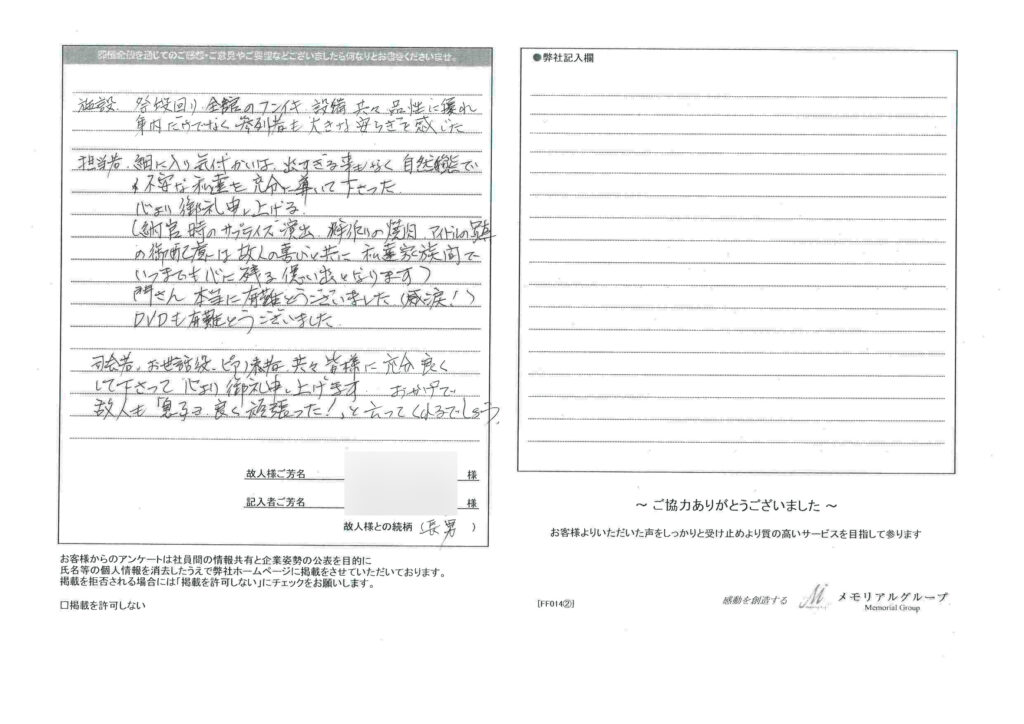 葬儀全般を通じてのご感想・ご意見やご要望などございましたら何なりとお書きくださいませ。
施設、祭段回り、全館のフンイキ、設備 共々 品性に優れ
車内だけでなく 参列者も 大きな 安らぎを 感じた
担当者、細に入り気付かいは、出すぎる事もなく 自然態で
不安な 私達を 充分に 導いて下さった
心より 御礼申し上げる
(納官時のサプライズ演出、手作りの焼肉、アイドルの写真
の御配慮は故人の喜びと共に 私達家族間で
いつまでも心に残る 憶い出となります)
門さん 本当に有難とうございました (感涙!)
DVDも有難とうございました
司会者、お世話役、ピアノ奏者、共々 皆様に 充分良く
して下さって 心より 御礼申し上げます おかげで
故人も「息子ヨ 良く 頑張った!」と云ってくれるでしょう
故人様ご芳名 様
記入者ご芳名 様
故人様との続柄 (長男)
お客様からのアンケートは社員間の情報共有と企業姿勢の公表を目的に
氏名等の個人情報を消去したうえで弊社ホームページに掲載をさせていただいております。
掲載を拒否される場合には「掲載を許可しない」にチェックをお願いします。
□掲載を許可しない
●弊社記入欄
~ ご協力ありがとうございました ~
お客様よりいただいた声をしっかりと受け止めより質の高いサービスを目指して参ります
[FF014②]
感動を創造する メモリアルグループ
Memorial Group